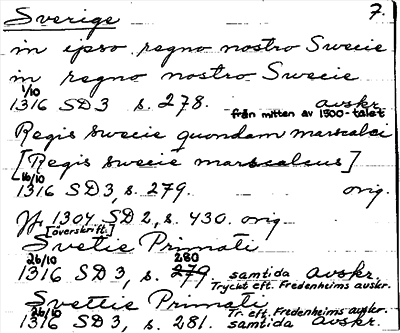 Sverige 7.
in ipso regno nostro Swecie
in regno nostro Swecie
1/10
1316 SD 3 s. 278. avskr.
från mitten av 1300-talet
Regis swecie quondam marscalci
[Regis swecie marscalcus]
16/10
1316 SD 3, s. 279. orig.
Jfr 1304 SD 2, s. 430. orig
[överskrift]
Svetie Primati
26/10 280
1316 SD 3, s. 279. samtida avskr.
Tryckt eft. Fredenheims avskr.
Svettie Primati
Tr. eft. Fredenheims avskr.
26/10
1316 SD 3, s. 281. samtida avskr.